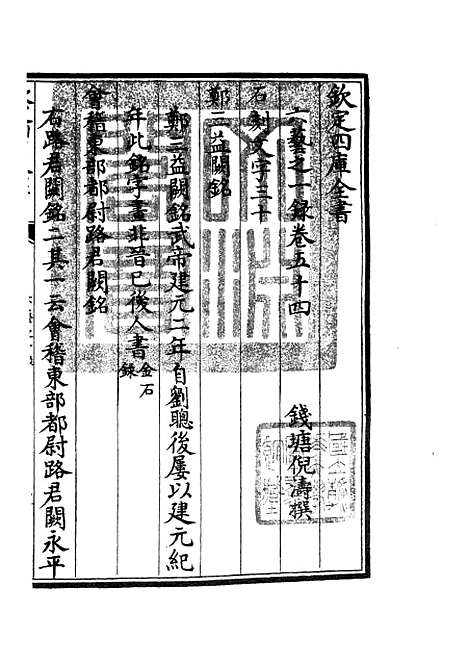 欽定四庫全書
六藝之一録卷五十四
錢塘倪濤撰
石刻文字三十
鄭三益闕銘
鄭三益闕銘武帝建元二年自劉聰後屢以建元紀
年此銘字畫非晉已後人書金石録
會稽東部都尉路君闕銘
右路君闕銘二其一云會稽東部都尉路君闕永平